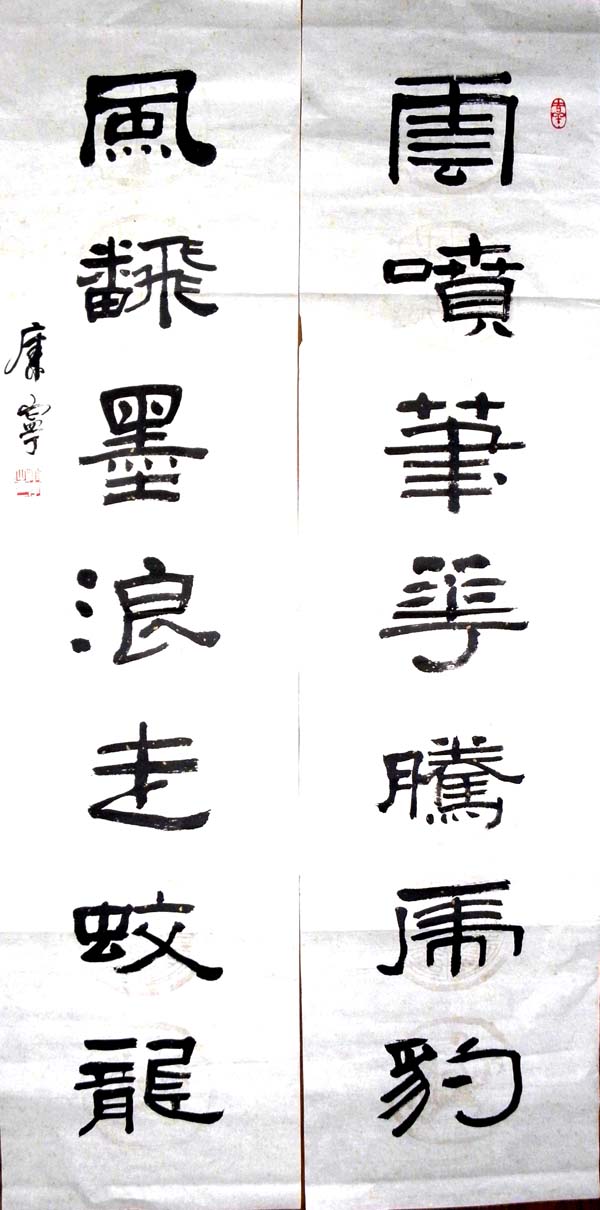 雲噴筆華騰虎豹
風飜墨浪走蛟龍
康寧